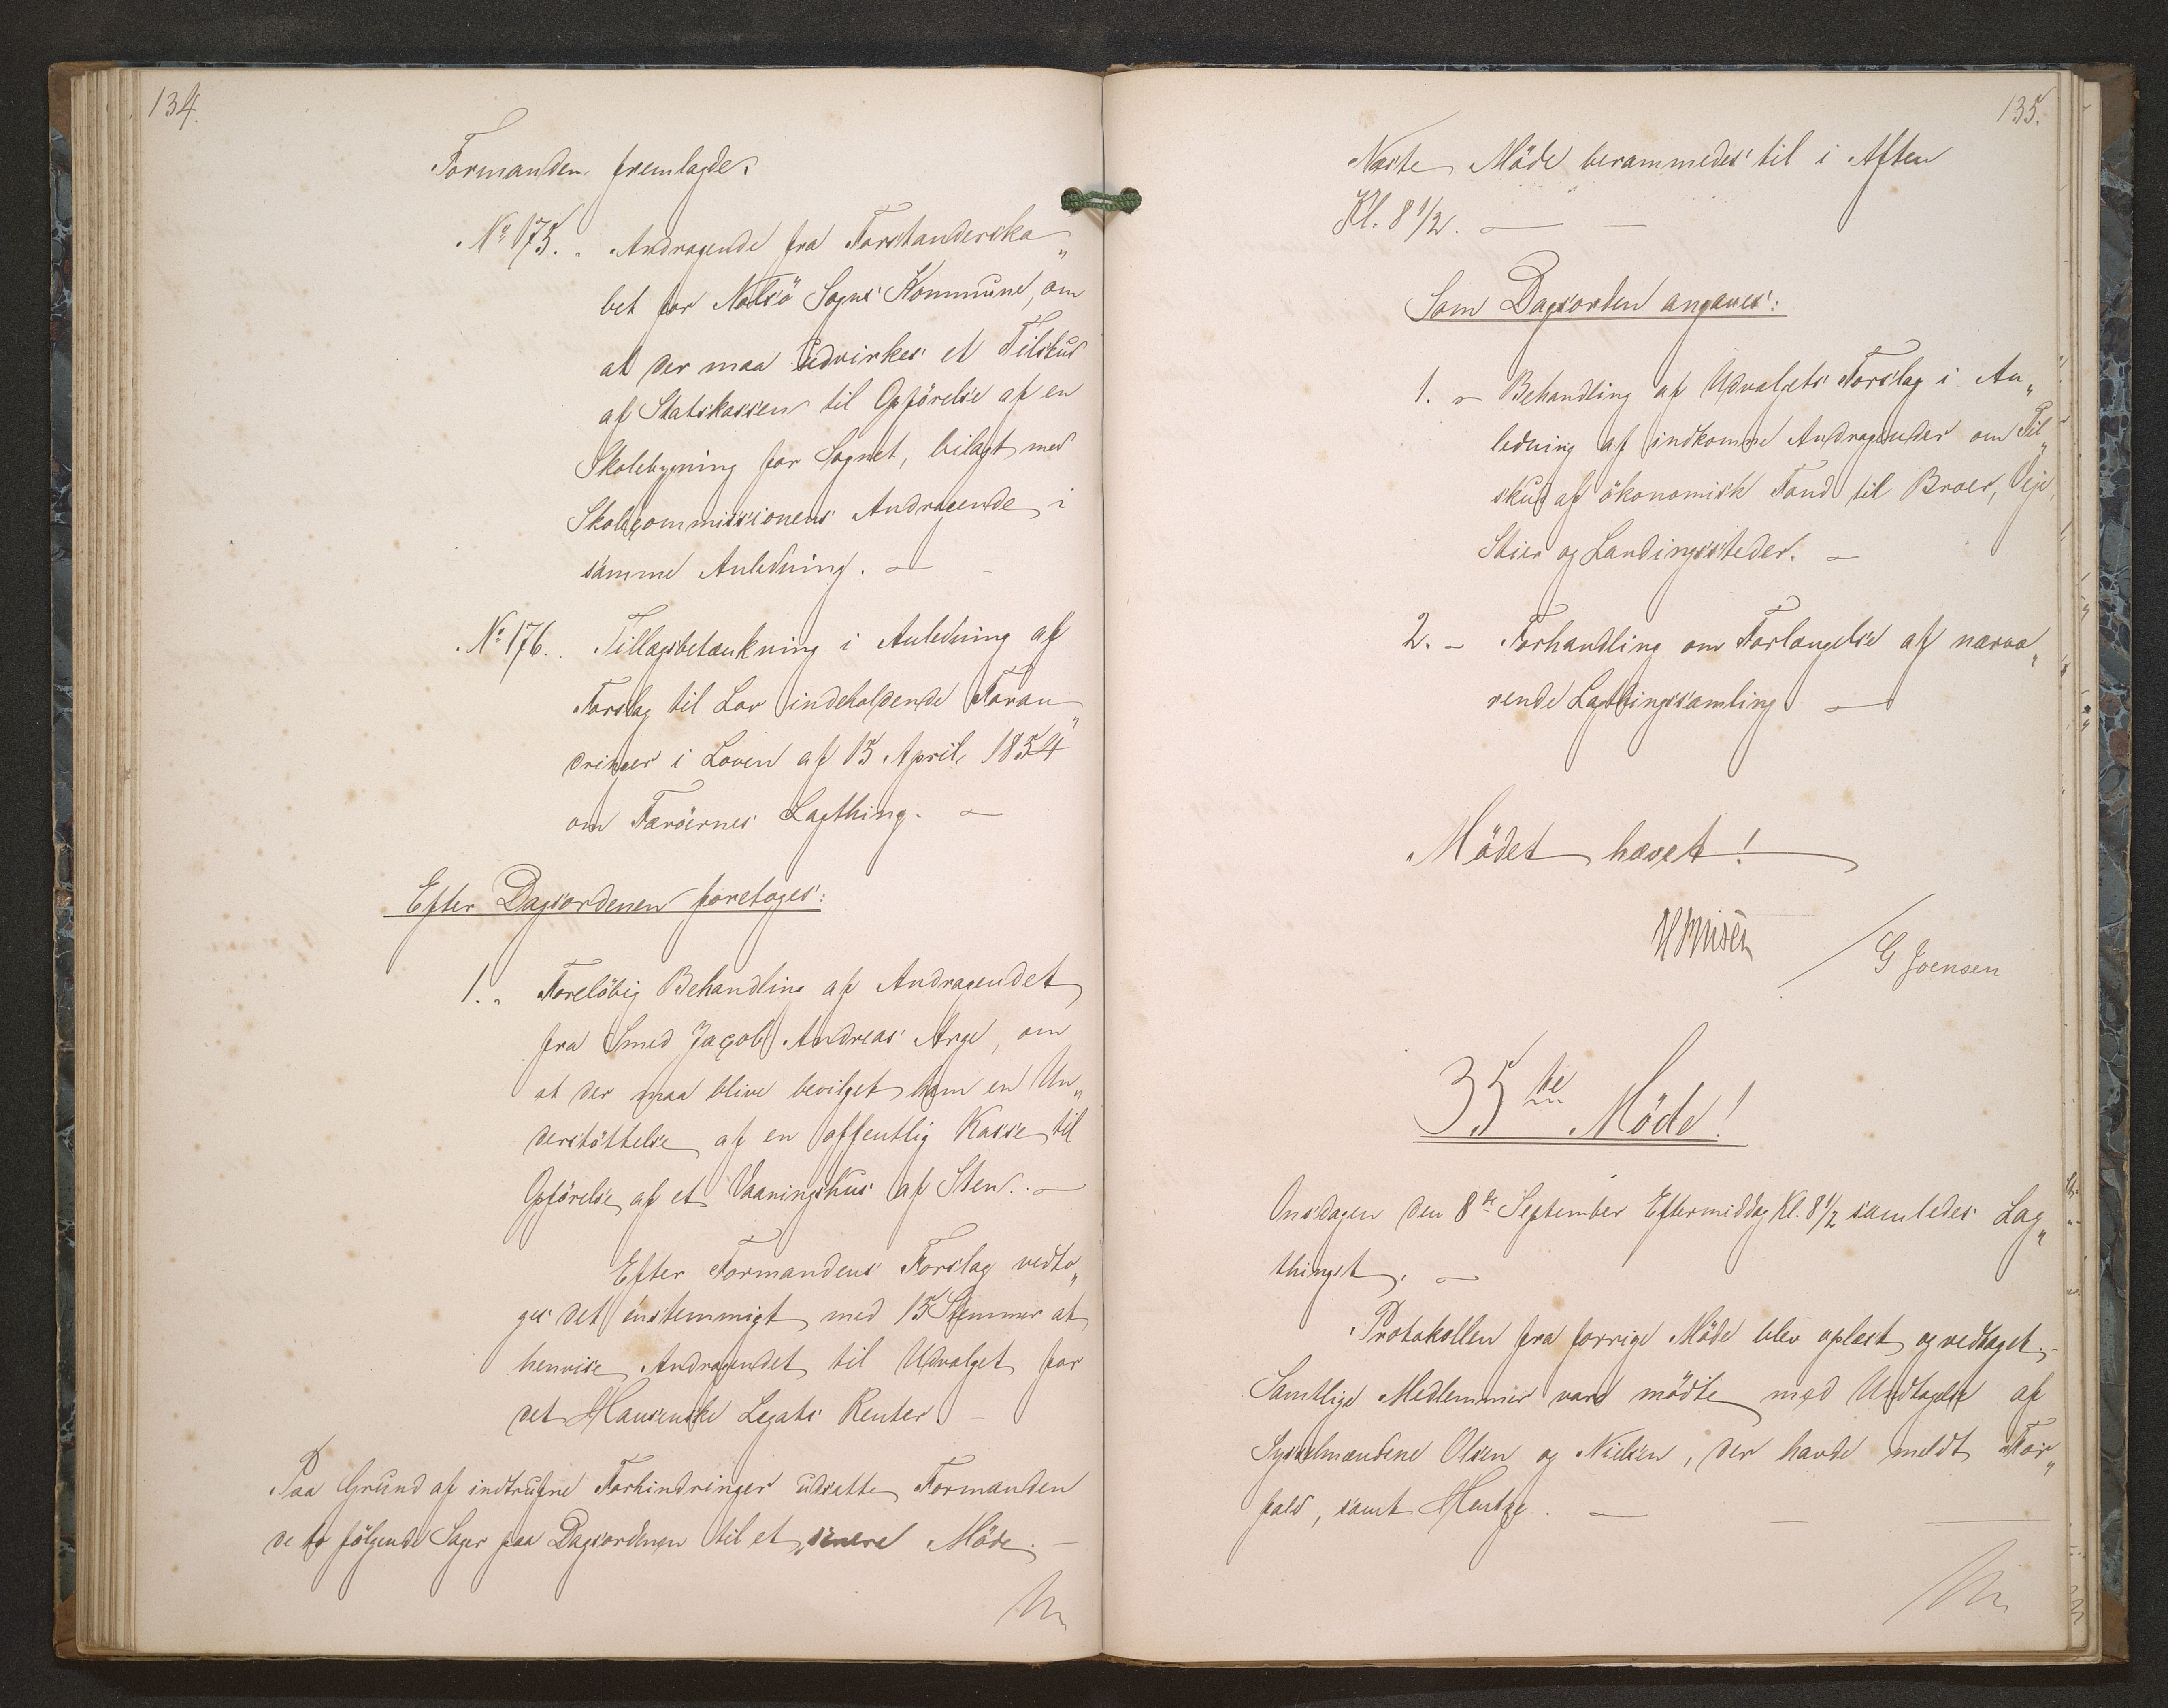 134.
Formanden fremlagde:
No 175. Andragende fra Forstanderska„
bet for Nolsö Sogns Kommune, om
at der maa udvirkes et Tilskud
af Statskassen til Opförelse af en
Skolebygning for Sognet, bilagt med
Skolecommissionens Andragende i
samme Anledning. —
No 176. Tillægsbetænkning i Anledning af
Forslag til Lov indeholdende Foran„
dringer i Loven af 15 April 1854
om Færöernes Lagthing. —
Efter Dagsordenen foretoges:
1. Foreløbig Behandling af Andragendet
fra Smed Jacob Andreas Arge, om
at der maa blive bevilget ham en Un„
derstöttelse af en offentlig Kasse til
Opförelse af et Vaaningshus af Sten. —
Efter Formandens Forslag vedto„
ges det enstemmigt med 15 Stemmer at
henvise Andragendet til Udvalget for
det Hansenske Legats Renter. —
Paa Grund af indtrufne Forhindringer udsatte Formanden
de to fölgende Sager paa Dagsordenen til et senere Möde. —
135.
Næste Möde berammedes til i Aften
Kl. 8 1/2. —
Som Dagsorden angaves:
1. – Behandling af Udvalgets Forslag i An„
ledning af indkomne Andragender om Til„
skud af ökonomisk Fond til Broer, Veje,
Stier og Landingssteder. —
2. – Forhandling om Forlængelse af nærvæ„
rende Lagthingssamling —
Mödet hævet!
/ G Joensen
35te Möde!
Onsdagen den 8de September Eftermiddag Kl. 8 1/2 samledes Lag„
thinget. —
Protokollen fra forrige Möde blev oplæst og vedtaget. –
Samtlige Medlemmer vare mödte med Undtagelse af
Sysselmændene Olsen og Nielsen, der havde meldt For„
fald, samt Hentze. —